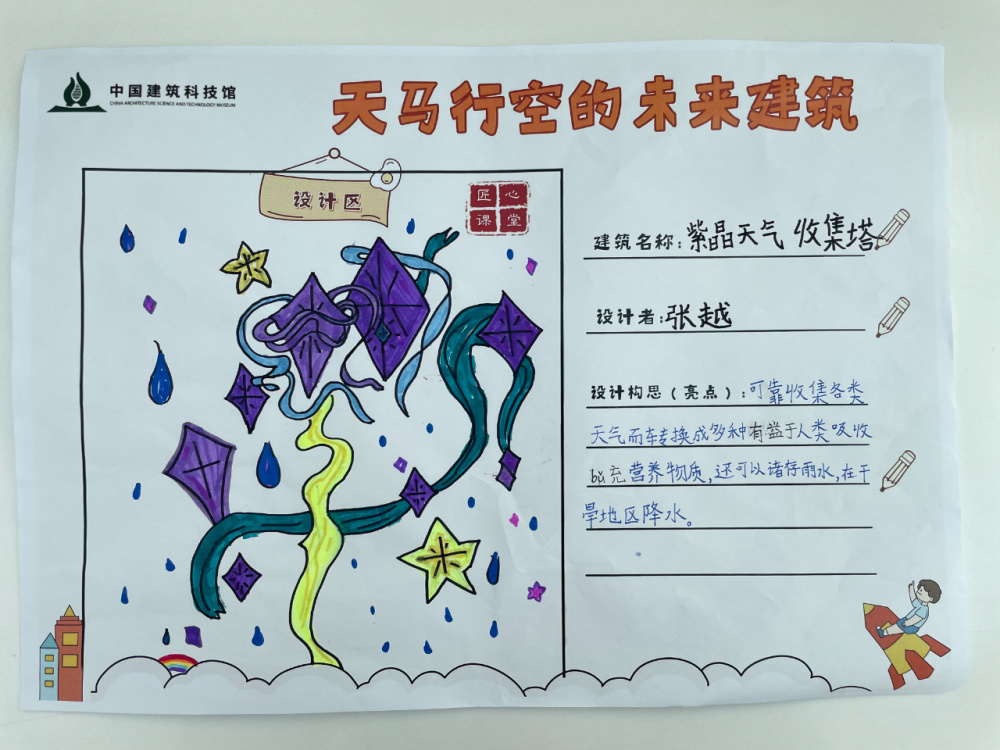 中国建筑科技馆
CHINA ARCHITECTURE SCIENCE AND TECHNOLOGY MUSEUM
天马行空的未来建筑
设计区
匠心
课堂
建筑名称:紫晶天气收集塔
设计者:张越
设计构思(亮点):可靠收集各类
天气而车转换成多种有益于人类吸收
补充营养物质,还可以诸存雨水,在干
旱地区降水。